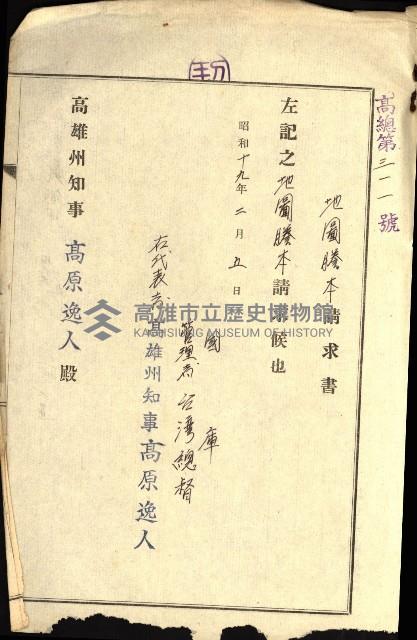 高總第三一一號
地圖謄本請求書
左記之地圖謄本請求候也
昭和十九年二月五日
國庫
管理者台灣總督
右代表者高雄州知事高原逸人
高雄州知事 高原逸人 殿
高雄市立歷史博物館
KAOHSIUNG MUSEUM OF HISTORY